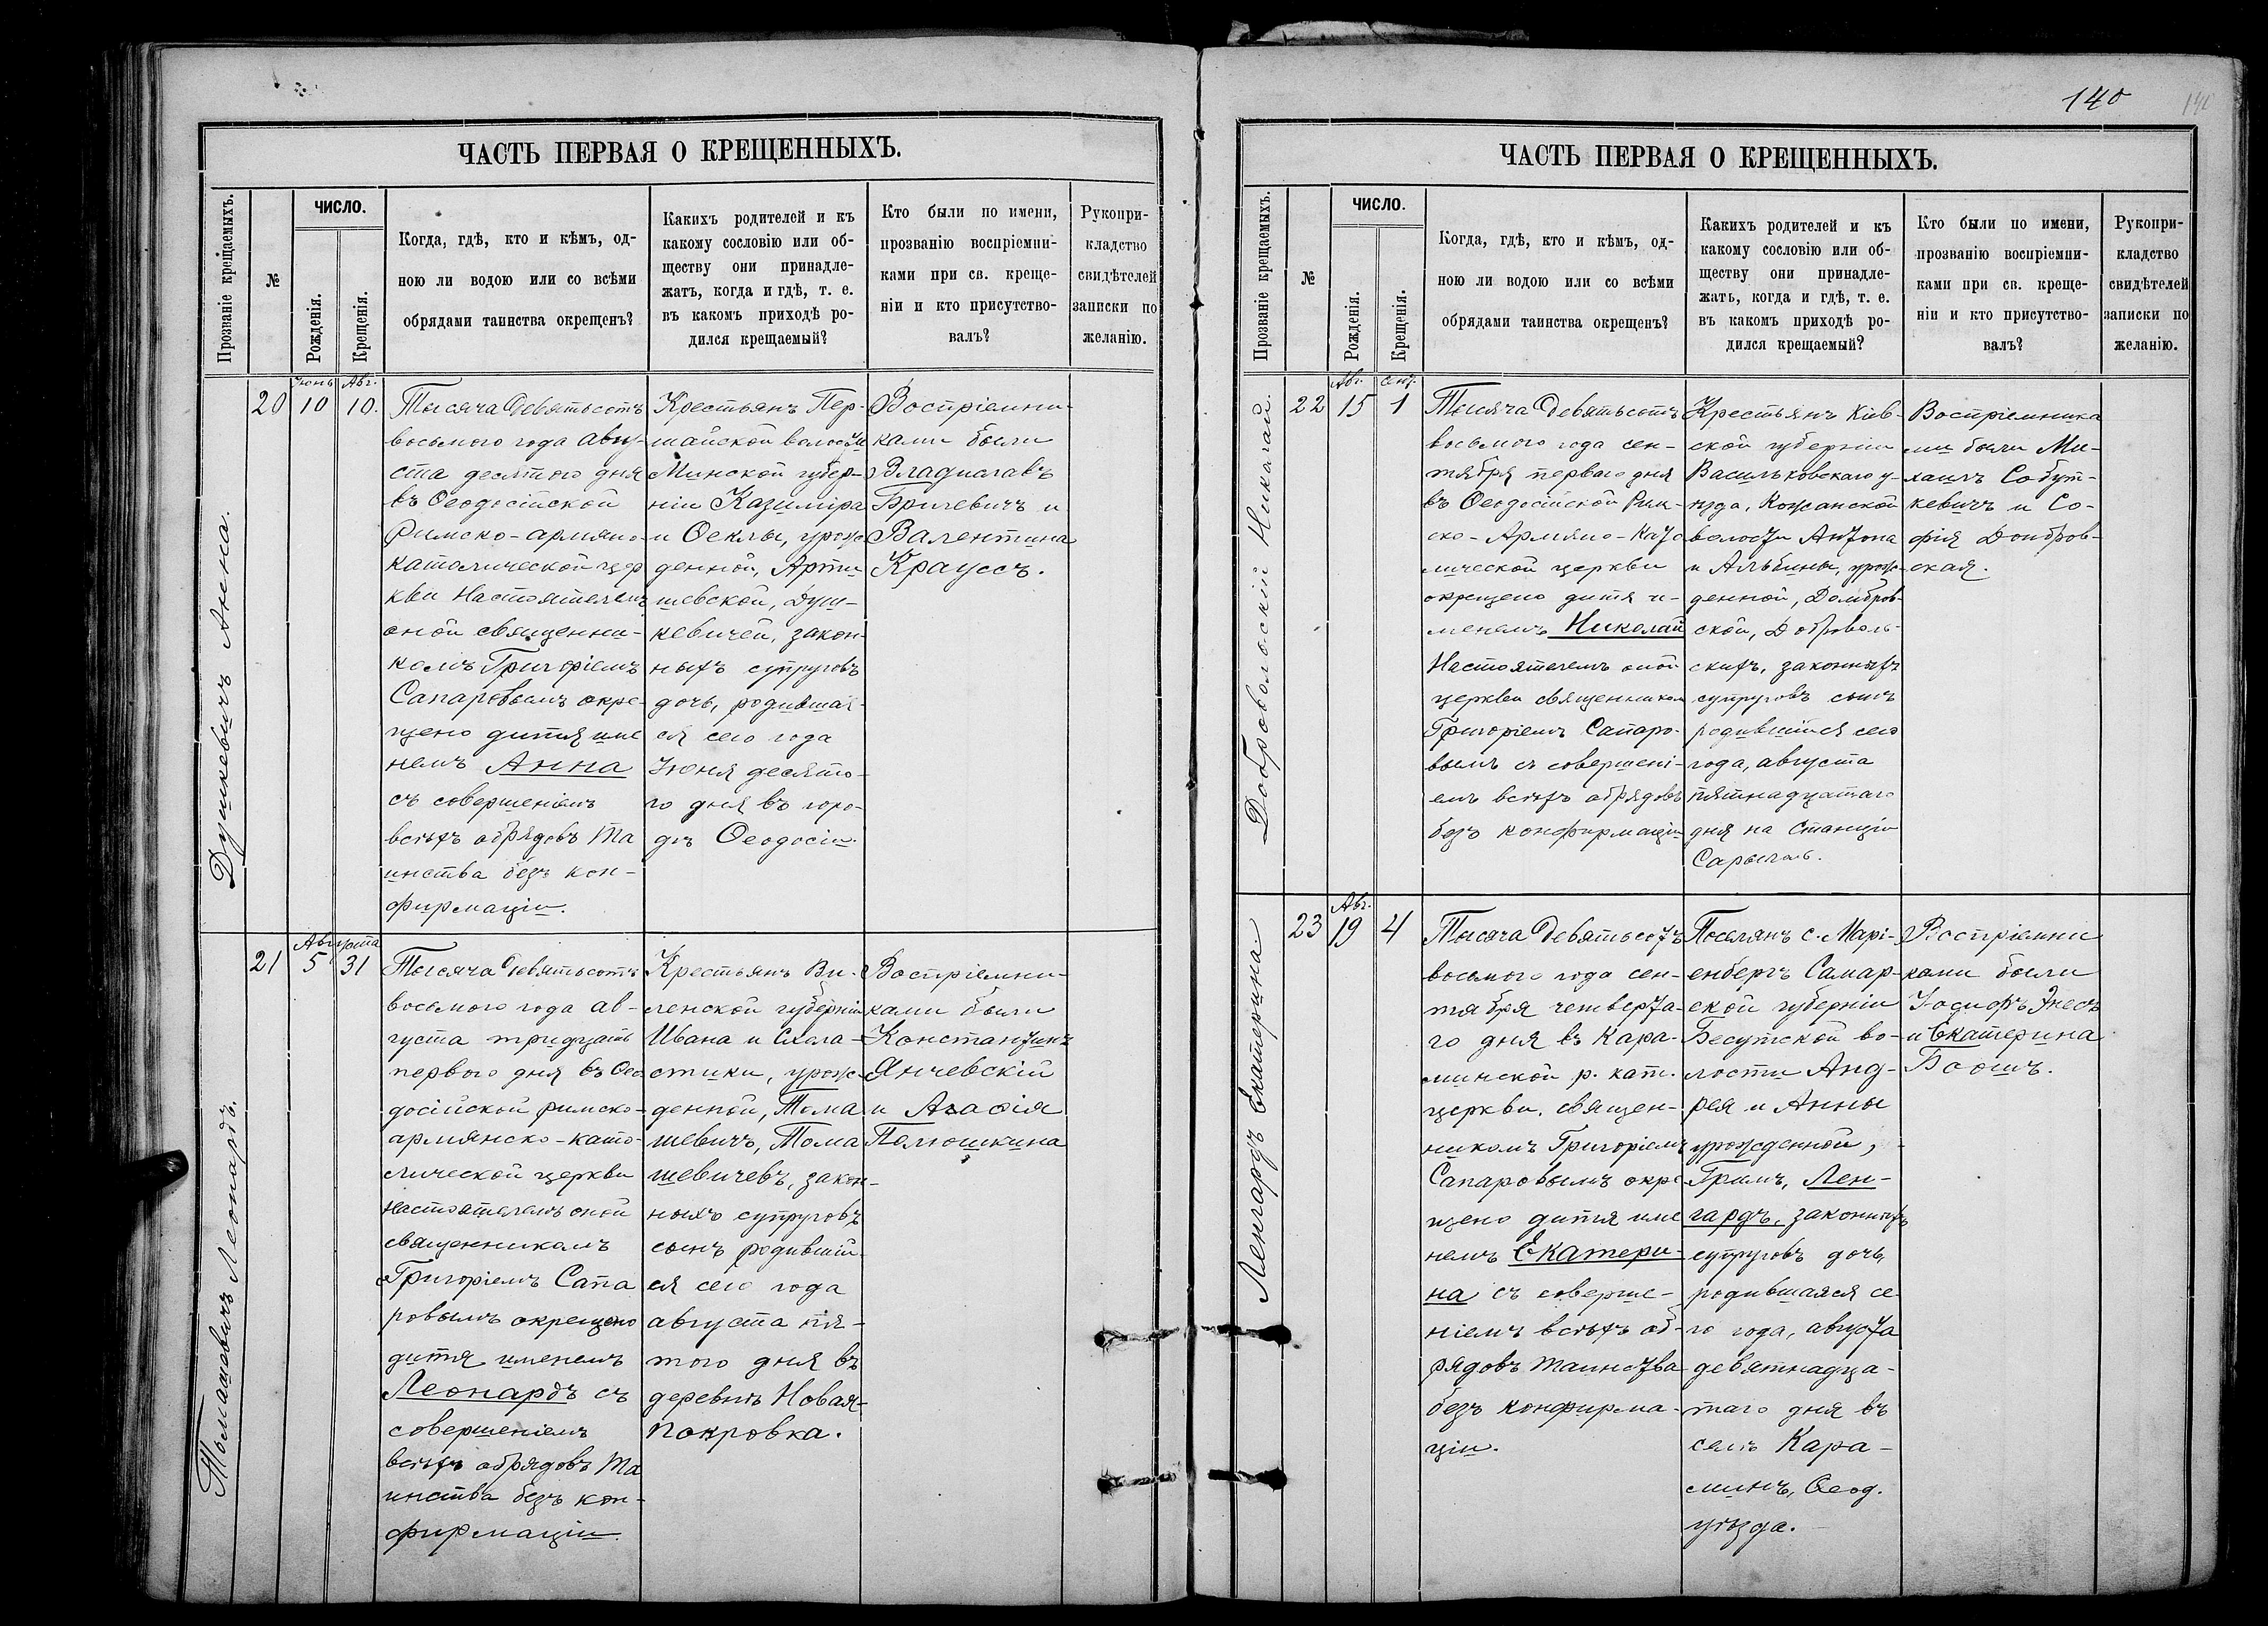 140
140
ЧАСТЬ ПЕРВАЯ О КРЕЩЕННЫХЪ.
Прозваніе крещаемыхъ.
№
ЧИСЛО.
Рожденія.
Крещенія.
Когда, гдѣ, кто и кѣмъ, од-
ною ли водою или со всѣми
обрядами таинства окрещенъ?
Какихъ родителей и къ
какому сословію или об-
ществу они принадле-
жатъ, когда и гдѣ, т. е.
въ какомъ приходѣ ро-
дился крещаемый?
Кто были по имени,
прозванію воспріемни-
ками при св. креще-
ніи и кто присутство-
валъ?
Рукопри-
кладство
свидѣтелей
записки по
желанію.
Душкевичъ Анна.
20
Іюнь
10
Авг.
10.
Тысяча девятьсотъ
восьмого года авгу-
ста десятого дня
въ Ѳеодосійской
Римско-армяно-
католической цер
кви Настоятелемъ
оной священни-
комъ Григоріемъ
Сапаровымъ окре-
щено дитя име
немъ Анна
съ совершеніемъ
всѣхъ обрядовъ Та
инства безъ кон-
фирмаціи.
Крестьянъ Пер-
шайской волости
Минской губер-
ніи Казиміра
и Ѳеклы, урож
денной, Арти
шевской, Душ-
кевичей, закон-
ныхъ супруговъ
дочь, родившая-
ся сего года
Іюня десято-
го дня въ горо-
дѣ Ѳеодосіи.
Воспріемни-
ками были
Владиславъ
Бричевичъ и
Валентина
Крауссъ.
Томашевичъ Леонардъ.
21
Августа
5
31
Тысяча девятьсотъ
восьмого года ав-
густа тридцать
первого дня въ Ѳео
досійской римско-
армянско-като-
лической церкви
настоятелемъ оной
священникомъ
Григоріемъ Сапа
ровымъ окрещено
дитя именемъ
Леонардъ съ
совершеніемъ
всѣхъ обрядовъ Та
инства безъ кон-
фирмаціи.
Крестьянъ Ви-
ленской губерніи
Ивана и Схола-
стики, урож-
денной, Тома
шевичъ, Тома
шевичевъ, закон-
ныхъ супруговъ
сынъ родившій-
ся сего года
августа пя-
того дня въ
деревнѣ Новая-
Покровка.
Воспріемни-
ками были
Константинъ
Янчевскій
и Агафія
Полюшкина
ЧАСТЬ ПЕРВАЯ О КРЕЩЕННЫХЪ.
Прозваніе крещаемыхъ.
№
ЧИСЛО.
Рожденія.
Крещенія.
Когда, гдѣ, кто и кѣмъ, од-
ною ли водою или со всѣми
обрядами таинства окрещенъ?
Какихъ родителей и къ
какому сословію или об-
ществу они принадле-
жатъ, когда и гдѣ, т. е.
въ какомъ приходѣ ро-
дился крещаемый?
Кто были по имени,
прозванію воспріемни-
ками при св. креще-
ніи и кто присутство-
валъ?
Рукопри-
кладство
свидѣтелей
записки по
желанію.
Добровольскій Николай.
22
Авг.
15
Сент.
1
Тысяча девятьсотъ
восьмого года сен-
тября перваго дня
въ Ѳеодосійской Рим-
ско-Армяно-Като
лической церкви
окрещено дитя и-
менемъ Николай
Настоятелемъ оной
церкви священникомъ
Григоріемъ Сапаро-
вымъ съ совершені-
емъ всѣхъ обрядовъ
безъ конфирмаціи
Крестьянъ Кіев-
ской губерніи
Васильковскаго у-
ѣзда, Кожанской
волости Антона
и Альбины, урож-
денной, Домбров-
ской, Доброволь-
скихъ, законныхъ
супруговъ сынъ
родившійся сего
года, августа
пятнадцатаго
дня на Станціи
Сарыголь.
Воспріемника
ми были Ми-
хаилъ Собут-
кевичъ и Со-
фія Домбров-
ская.
Ленгардъ Екатерина.
23
Авг.
19
4
Тысяча девятьсотъ
восьмого года сен-
тября четверта-
го дня въ Кара-
минской р. кат.
церкви, священ-
никомъ Григоріемъ
Сапаровымъ окре
щено дитя име
немъ Екатери-
на съ соверше-
ніемъ всѣхъ об-
рядовъ таинства
безъ конфирма-
ціи.
Поселянъ с. Марі-
енбергъ Самар-
ской губерніи
волости Анд-
рея и Анны
урожденной,
Гримъ, Лен-
гардъ, законныхъ
супруговъ дочь,
родившаяся се
го года, августа
девятнадца-
таго дня въ
селѣ Кара-
минъ, Ѳеод.
уѣзда.
Воспріемни
ками были
Іосифъ Энесъ
и Екатерина
Боошъ.